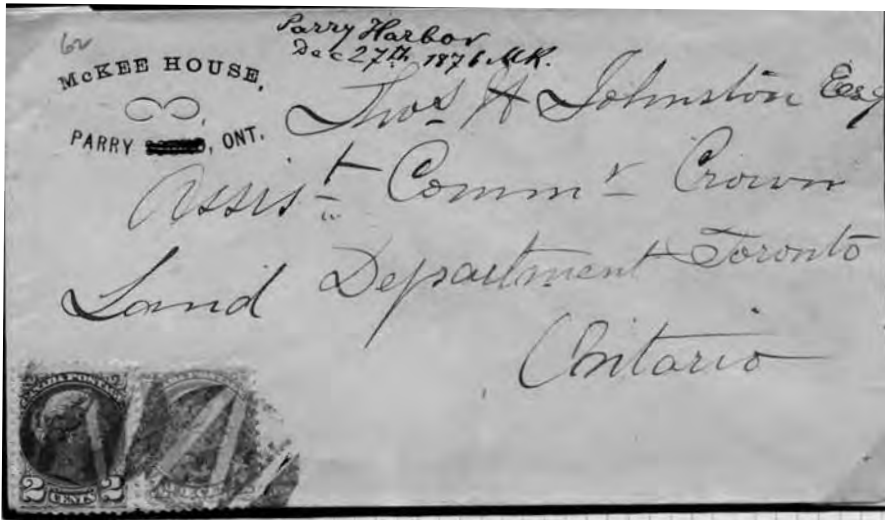 62
Parry Harbor
Dec 27th, 1876 MK.
McKEE HOUSE,
PARRY , ONT.
Thos A Johnston Esq
Assist Commr Crown
Land Department Toronto
Ontario
CANADA POSTAGE
2 CENTS 2